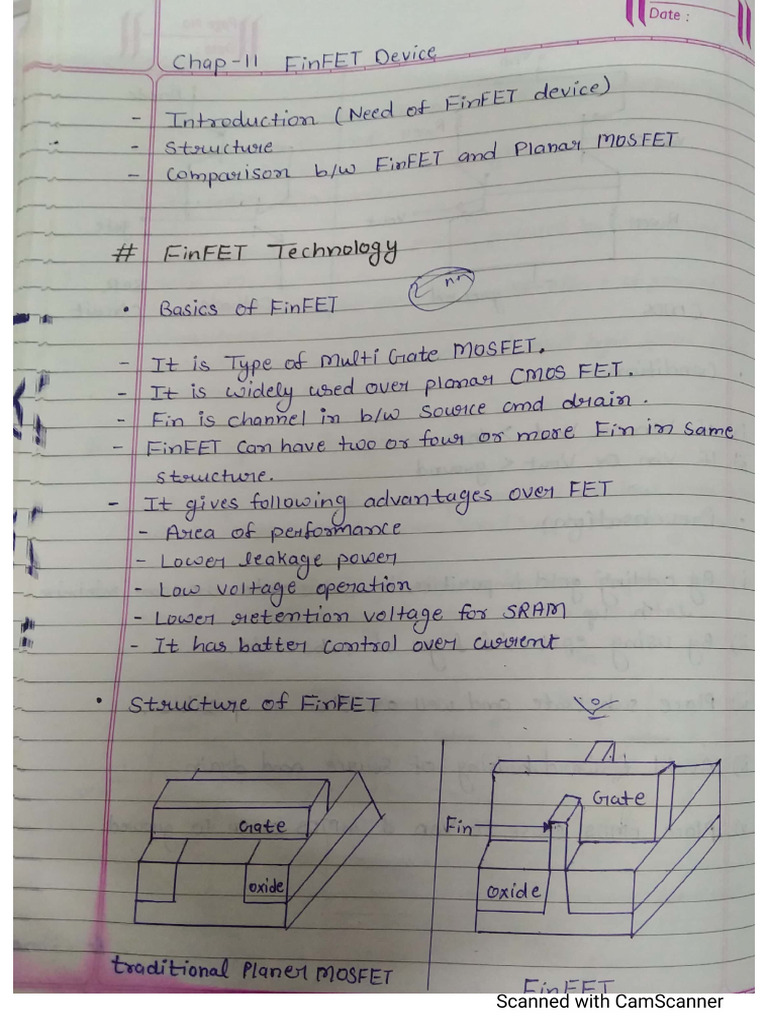 Date :
Chap-11 FinFET Device
- Introduction (Need of FinFET device)
- Structure
- Comparison b/w FinFET and Planar MOSFET
# FinFET Technology
• Basics of FinFET
- It is Type of Multi Gate MOSFET.
- It is widely used over planar CMOS FET.
- Fin is channel in b/w source and drain.
- FinFET can have two or four or more Fin in same
structure.
- It gives following advantages over FET
- Area of performance
- Lower leakage power
- Low voltage operation
- Lower retention voltage for SRAM
- It has batter control over current
• Structure of FinFET
Gate
oxide
traditional Planer MOSFET
Gate
Fin
oxide
FinFET
Scanned with CamScanner